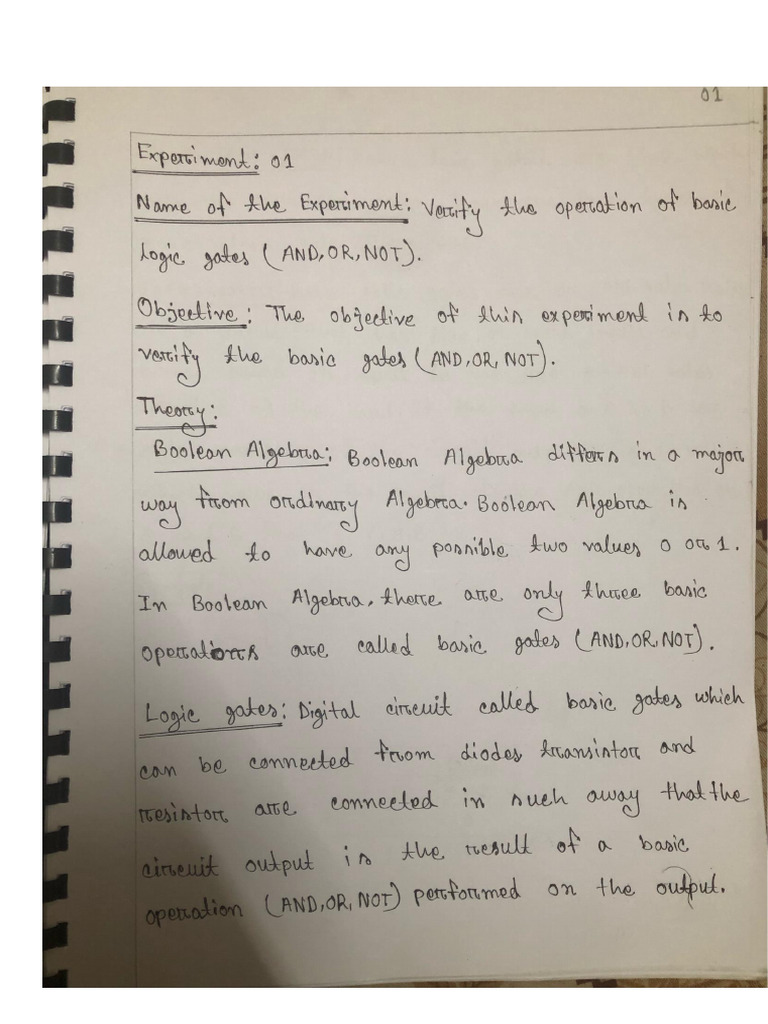 01
Experiment: 01
Name of the Experiment: Verify the operation of basic
Logic gates (AND, OR, NOT).
Objective: The objective of this experiment is to
verify the basic gates (AND, OR, NOT).
Theory:
Boolean Algebra: Boolean Algebra differs in a major
way from ordinary Algebra. Boolean Algebra is
allowed to have any possible two values 0 or 1.
In Boolean Algebra, there are only three basic
operators are called basic gates (AND, OR, NOT).
Logic gates: Digital circuit called basic gates which
can be connected from diodes transistor and
resistor are connected in such away that the
circuit output is the result of a basic
operation (AND, OR, NOT) performed on the output.